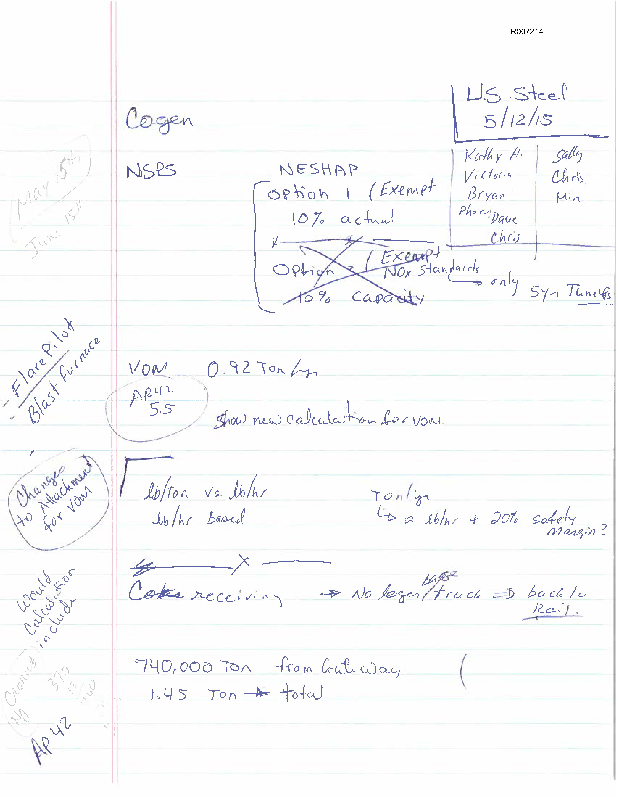 R007214
US Steel
5/12/15
Kathy H.
Victoria
Bryan
Dave
Chris
Sally
Chris
Min
Cogen
NSPS
NESHAP
Option 1 (Exempt
10% actual
Option 2 (Exempt
NOx Standards
only
10% Capacity
May 15th
June 15th
- Flare Pilot
- Blast Furnace
VOM 0.92 Ton/yr
AP42
5.5
Show new calculation for VOM
Change
to Attachment
for VOM
lb/Ton vs lb/hr
lb/hr Based
Ton/yr
lb/hr + 20% safety
margin?
Coke receiving → No longer / truck ⇒ back to
Rail.
Barge
Would
Calculation
include
740,000 Ton from Gateway
1.45 Ton → total
AP42